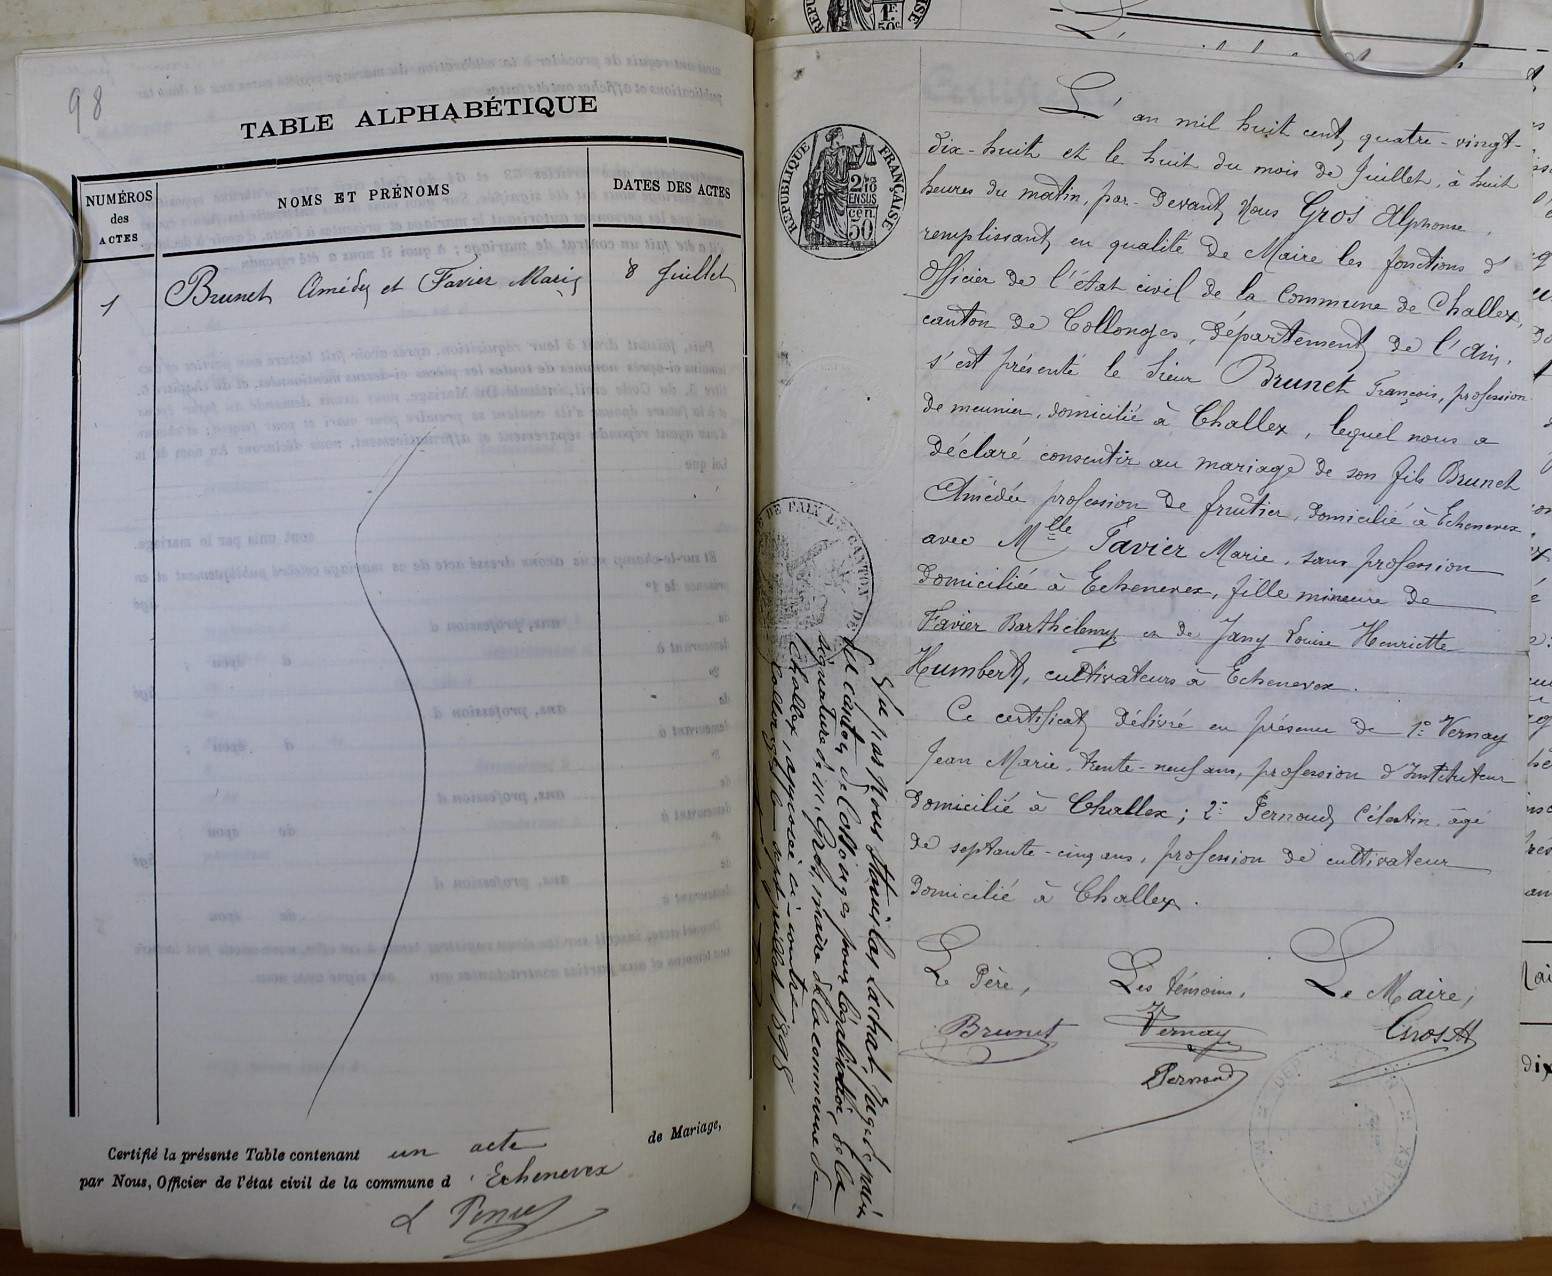 98
TABLE ALPHABÉTIQUE
NUMÉROS
des
ACTES
NOMS ET PRÉNOMS
DATES DES ACTES
1
Brunet Amédée et Favier Marie
8 Juillet
Certifié la présente Table contenant un acte de Mariage,
par Nous, Officier de l'état civil de la commune d'Echenevex
RÉPUBLIQUE FRANÇAISE
2/10
EN SUS
50 cen
L'an mil huit cent quatre-vingt-
dix-huit et le huit du mois de Juillet, à huit
heures du matin, par-devant Nous Gros Alphonse,
remplissant en qualité de Maire les fonctions d'
Officier de l'état civil de la Commune de Challex,
canton de Collonges, Département de l'Ain,
s'est présenté le sieur Brunet François, profession
de meunier, domicilié à Challex, lequel nous a
déclaré consentir au mariage de son fils Brunet
Amédée profession de fruitier, domicilié à Echenevex
avec Mlle Favier Marie, sans profession
domiciliée à Echenevex, fille mineure de
Favier Barthelemy et de Jany Louise Henriette
Humbert, cultivateurs à Echenevex.
Ce certificat délivré en présence de 1° Vernay
Jean Marie, trente-neuf ans, profession d'Instituteur
domicilié à Challex; 2° Pernoud Célestin, âgé
de septante-cinq ans, profession de cultivateur
domicilié à Challex.
Le Père,
Les témoins,
Le Maire,
Brunet
Vernay
Gros A
Pernoud
DE PAIX CANTON DE
Vu par Nous Stanislas Lachat, Juge de paix
du canton de Collonges pour légalisation de la
signature de M. Gros, maire de la commune de
Challex, apposée ci-contre.
Collonges le sept juillet 1898
DE CHALLEX